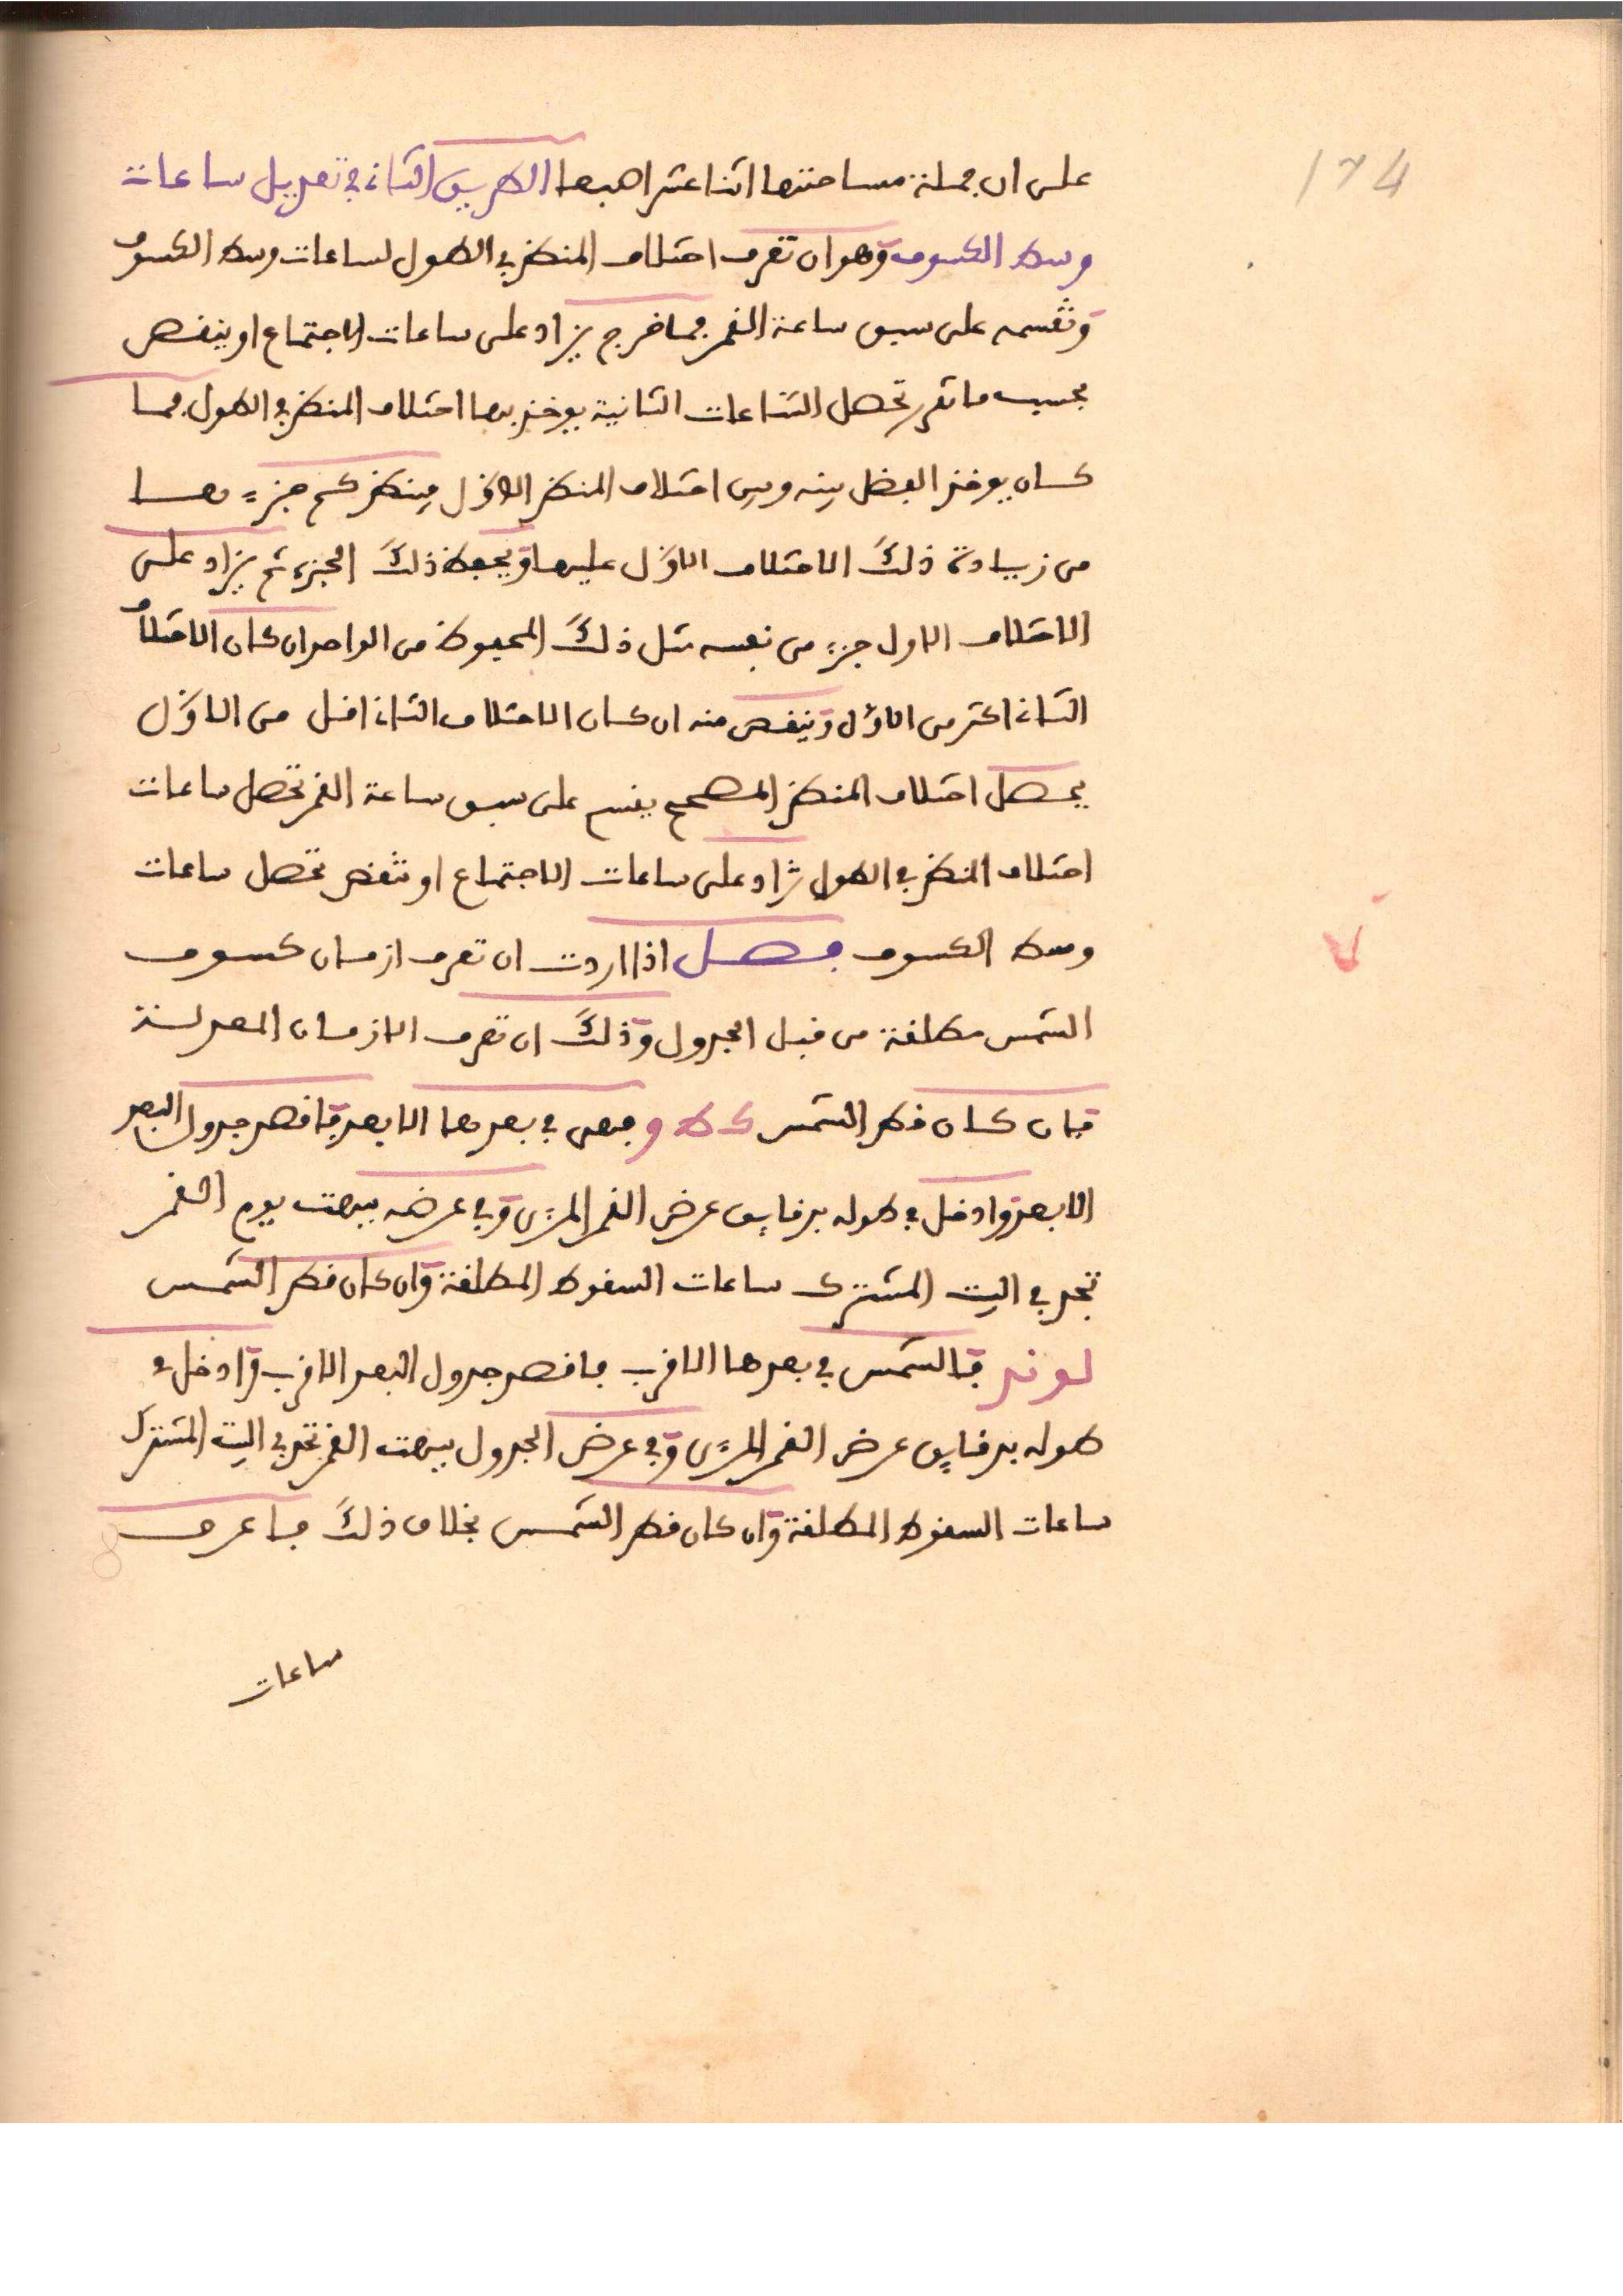 174
على ان جملة مساحتها اثنا عشر اصبعا الطريق الثاني في تعديل ساعات
وسط الكسوف وهو ان تعرف اختلاف المنظر في الطول لساعات وسط الكسوف
وتقسمه على سبق ساعة القمر فما خرج يزاد على ساعات الاجتماع او ينقص
بحسب ما تقرر تحصل الساعات الثانية يوخذ بها اختلاف المنظر في الطول فما
كان يوخذ الفضل بينه وبين اختلاف المنظر الاوّل فينظر كم جزء هـا
من زيادة ذلك الاختلاف الاوّل عليها ويحفظ ذلك الجزء ثم يزاد على
الاختلاف الاول جزء من نفسه مثل ذلك المحفوظ من الواحد ان كان الاختلاف
الثاني اكثر من الاوّل وينقص منه ان كان الاختلاف الثاني اقل من الاوّل
يحصل اختلاف المنظر المصحح يقسم على سبق ساعة القمر تحصل ساعات
اختلاف المنظر في الطول تزاد على ساعات الاجتماع او تنقص تحصل ساعات
وسط الكسوف فصل اذا اردت ان تعرف ازمان كسوف
الشمس مطلقة من قبل الجدول وذلك ان تعرف الازمان المعدلة
فان كان قطر الشمس كط و فهي في بعدها الابعد فاقصد جدول البعد
الابعد وادخل في طوله بدقايق عرض القمر المرءى وفي عرضه ببهت يوم القمر
تجد في البيت المشترك ساعات السقوط المطلقة وان كان قطر الشمس
لو ند فالشمس في بعدها الاقرب فاقصد جدول البعد الاقرب وادخل في
طوله بدقايق عرض القمر المرءى وفي عرض الجدول ببهت القمر تجد في البيت المشترك
ساعات السقوط المطلقة وان كان قطر الشمس بخلاف ذلك فاعرف
ساعات